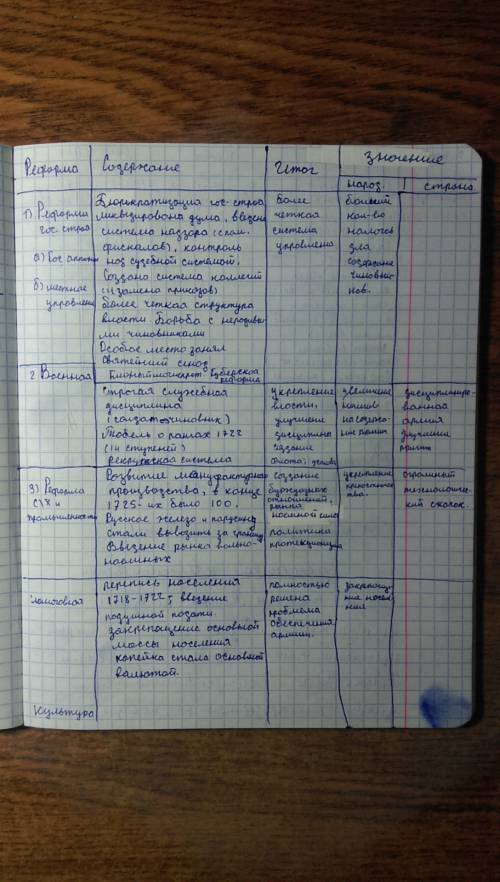 Реформа Содержание Итог Значение
народ страна
1) Реформа гос. строя
а) Гос. аппарат
б) местное управление
Бюрократизация гос. строя
ликвидирована дума, введена
система надзора
фискалов), контроль
над судебной системой,
Создано система коллегий
(11 замена приказов)
более четкая структура
власти. Борьба с нерадивы-
ми чиновниками
Особое место занял
святейший синод
Губернская
реформа
более
четкая
система
управлена
больший
кол-во
налогов
содержание
чиновни-
ков.
2 Военная
Строгая служебная
дисциплина
(солдат→чиновник)
Табель о рангах 1722
(14 ступеней)
рекрутская система
укрепление
власти,
улучшение
дисциплины
создание
флота
увеличение
дисциплиниро-
ванная
армия
улучшение
3) Реформа
с/х и
промышленности
Розвытие мануфактурного
производства, к концу
1725- их было 100.
Русское железо и парусину
стали вывозить за границу
Введение рынка вольно-
наемных
создание
буржуазных
отношений,
рынка
наемной силы
политика
протекционизма
укрепление
крепостниче-
ства.
огромный
технологичес-
кий скачок.
Налоговая
перепись населения
1718-1722; введение
подушной подати.
закрепощение основной
массы населения
копейка стала основной
валютой.
полностью
решена
проблема
обеспечения
армии.
закрепоще-
ние населе-
ния
Культура